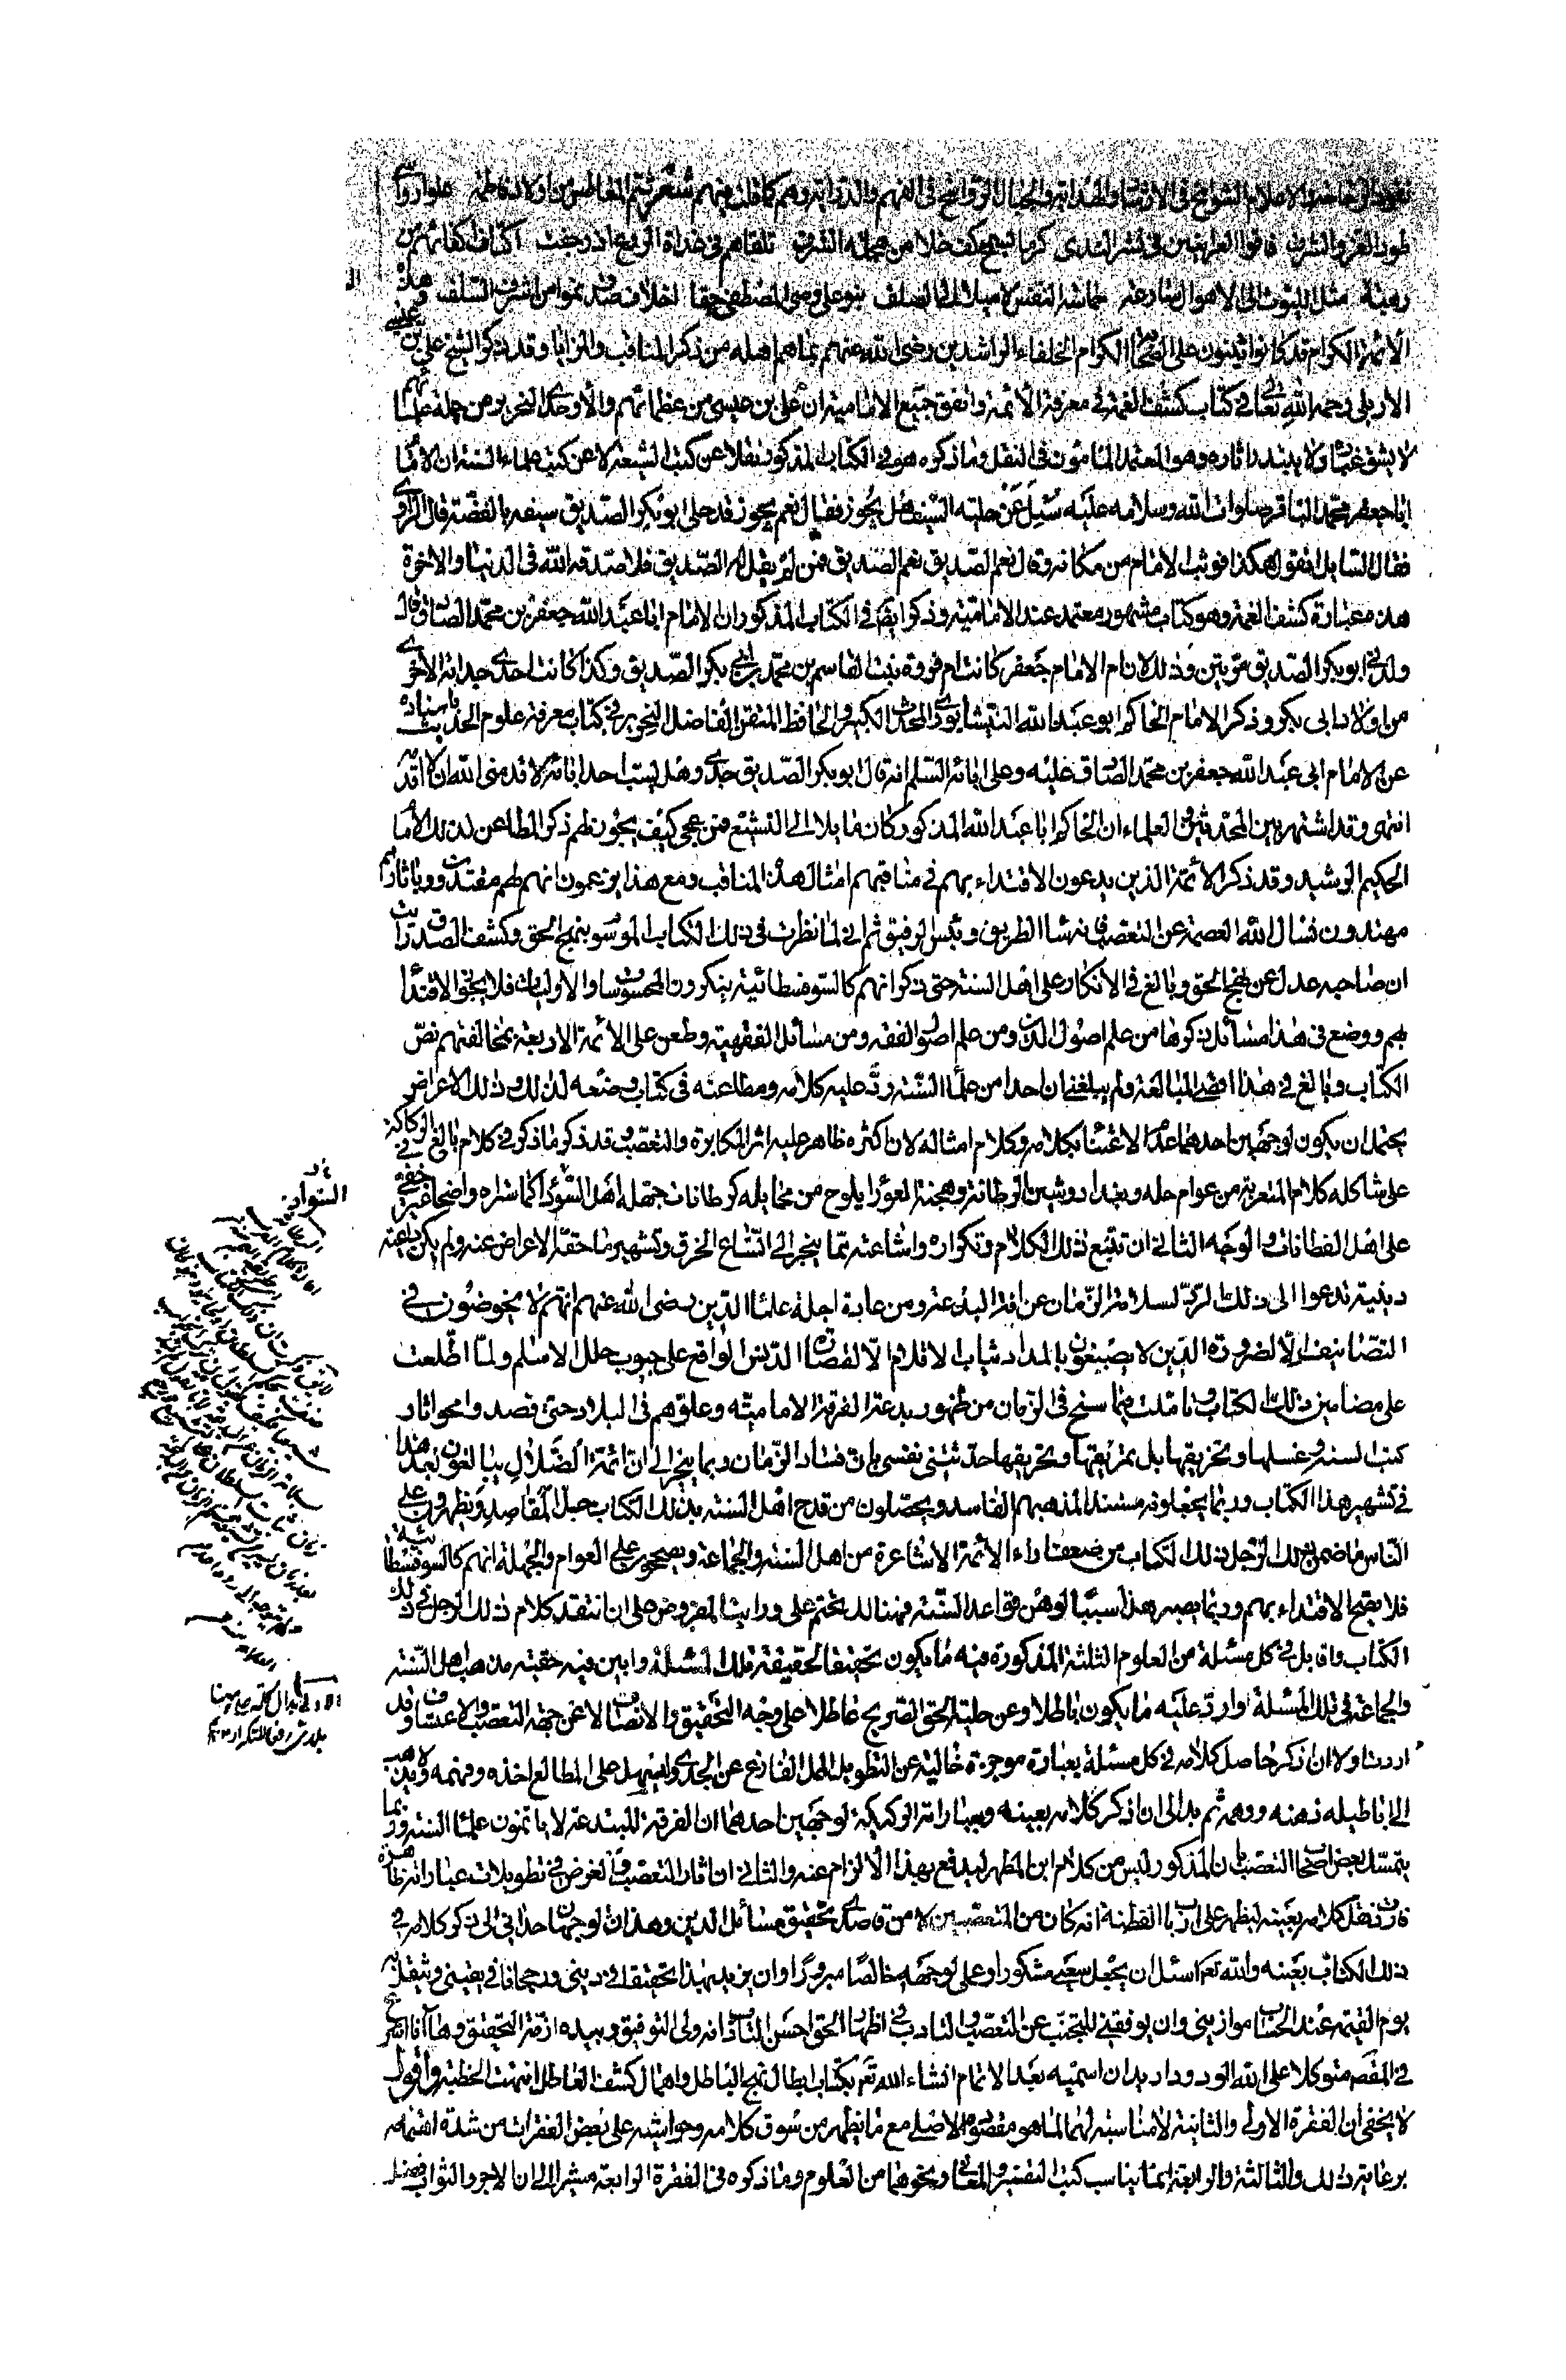 طود العز والشرف فاقوا العرانين في نشر الندى كرما بسمح كف خلا من هجنة السرف تلقاهم في غداة الروع اذ رجفت اكتاف اكفائهم من
رهبة مثل الليوث الى الاهوال سارعة حماسة النفس لا ميلا الى الصلف بنو علي وصي المصطفى حقا اخلاف صدق نموا من اشرف السلف وهذه
الأئمة الكرام قد كانوا يثنون على الصحابة الكرام الخلفاء الراشدين رضي الله عنهم بما هم اهله من ذكر المناقب والمزايا وقد ذكر الشيخ علي بن عيسى
الاربلي رحمه الله تعالى في كتاب كشف الغمة في معرفة الأئمة واتفق جميع الامامية ان علي بن عيسى من عظمائهم والأوحدي النحرير من جملة علمائهم
لا يشق غباره ولا يبتدر اثاره وهو المعتمد المامون في النقل وما ذكره هو في الكتاب المذكور نقلا عن كتب الشيعة لا عن كتب علماء السنة ان الامام
ابا جعفر محمد الباقر صلوات الله وسلامه عليه سئل عن حلية السيف هل يجوز فقال نعم يجوز قد حلى ابو بكر الصديق سيفه بالفضة قال الراوي
فقال السايل اتقول هكذا فوثب الامام من مكانه وقال نعم الصديق نعم الصديق فمن لم يقل له الصديق فلا صدقه الله في الدنيا والاخرة
هذه عبارة كشف الغمة وهو كتاب مشهور معتمد عند الامامية وذكر ايضا في الكتاب المذكور ان الامام ابا عبد الله جعفر بن محمد الصادق قال
ولدني ابو بكر الصديق مرتين وذلك لان ام الامام جعفر كانت ام فروة بنت القاسم بن محمد بن ابي بكر الصديق وكذا كانت احدى جداته الاخرى
من اولاد ابي بكر وذكر الامام الحاكم ابو عبد الله النيسابوري المحدث الكبير والحافظ المتقن الفاضل النحرير في كتاب معرفة علوم الحديث باسناده
عن الامام ابي عبد الله جعفر بن محمد الصادق عليه وعلى ابائه السلم انه قال ابو بكر الصديق جدي وهل يسب احد اباءه لا قدمني الله ان لا اقدمه
انتهى وقد اشتهر بين المحدثين والعلماء ان الحاكم ابا عبد الله المذكور كان مايلا الى التشيع فمن عجبي كيف يجوز لهم ذكر المطاعن لذلك الامام
الحكيم الرشيد وقد ذكر الأئمة الذين يدعون الاقتداء بهم في مناقبهم امثال هذه المناقب ومع هذا يزعمون انهم لهم مقتدون وباثارهم
مهتدون نسال الله العصمة عن التعصب فانه ساء الطريق وبئس الرفيق ثم اني لما نظرت في ذلك الكتاب الموسوم بنهج الحق وكشف الصدق رايت
ان صاحبه عدل عن نهج الحق وبالغ في الانكار على اهل السنة حتى ذكر انهم كالسوفسطائية ينكرون المحسوسات والاوليات فلا يجوز الاقتداء
بهم ووضع في هذا مسائل ذكرها من علم اصول الدين ومن علم اصول الفقه ومن مسائل الفقهية وطعن على الأئمة الاربعة بمخالفتهم نص
الكتاب وبالغ في هذا اقصى المبالغة ولم يبلغني ان احدا من علماء السنة رد عليه كلامه ومطاعنه في كتاب وضعه لذلك وذلك الاعراض
يحتمل ان يكون لوجهين احدهما عدم الاعتناء بكلامه وكلام امثاله لان اكثره ظاهر عليه اثر المكابرة والتعصب وقد ذكر ما ذكر في كلام بالغ في الركاكة
على شاكلة كلام المتعربة من عوام حلة وبغداد وشين الرطانة وهجنة العور يلوح من مخايله كرطانات جهلة اهل السواد كما ستراه واضحا غير خفي
على اهل الفطانات والوجه الثاني ان تتبع ذلك الكلام وتكراره واشاعته مما ينجر الى اتساع الخرق وتشهير ما حقه الاعراض عنه ولم يكن داعية
دينية تدعو الى ذلك الرد لسلامة الزمان عن افة البدعة ومن عادة اجلة علماء الدين رضي الله عنهم انهم لا يخوضون في
التصانيف الا لضرورة الدين لا يصبغون بالمداد ثياب الاقلام الا لقصارة الدنس الواقع على جيوب حلل الاسلم ولما اطلعت
على مضامين ذلك الكتاب وتاملت فيما سنح في الزمان من ظهور بدعة الفرقة الامامية وعلوهم في البلاد حتى قصدوا محو اثار
كتب السنة وغسلها وتحريقها بل تمزيقها وتخريقها حدثتني نفسي بان فساد الزمان ربما ينجر الى ان ائمة الضلال يبالغون بعد هذا
في تشهير هذا الكتاب وربما يجعلونه مستند المذهبهم الفاسد ويحصلون من قدح اهل السنة بذلك الكتاب جل المقاصد ويظهرون على
الناس ما ضمن ذلك الرجل ذلك الكتاب من ضعف اراء الأئمة الاشاعرة من اهل السنة والجماعة ويصححون على العوام والجملة انهم كالسوفسطائية
فلا يصح الاقتداء بهم وربما يصير هذا سببا لوهن قواعد السنة فهنالك تحتم علي ورايت المفروض علي ان انتقد كلام ذلك الرجل في ذلك
الكتاب واقابل في كل مسئلة من العلوم الثلثة المذكورة فيه ما يكون تحقيقا لحقيقة تلك المسئلة وابين فيه حقية مذهب اهل السنة
والجماعة في تلك المسئلة او ارد عليه ما يكون باطلا وعن حلية الحق الصريح عاطلا على وجه التحقيق والانصاف لا عن جهة التعصب والاعتساف وقد
اردت اولا ان اذكر حاصل كلامه في كل مسئلة بعبارة موجزة خالية عن التطويل الممل الفارغ عن الجدوى ليسهل على المطالع اخذه وفهمه ولا يذهب
الى اباطيله ذهنه ووهمه ثم بدا لي ان اذكر كلامه بعينه وعباراته الركيكة لوجهين احدهما ان الفرقة المبتدعة لا ياتمنون علماء السنة وربما
يتمسك بعض اصحاب التعصب بان المذكور ليس من كلام ابن المطهر ليدفع بهذا الالزام عنه والثاني ان اثار التعصب والغرض في تطويلات عباراته ظاهرة
فاردت نقل كلامه بعينه ليظهر على ارباب الفطنة انه كان من المتعصبين لا من قاصدي تحقيق مسائل الدين وهذان الوجهان حداني الى ذكر كلامه في
ذلك الكتاب بعينه والله تعم اسئل ان يجعل سعيي مشكورا وعملي لوجهه خالصا مبرورا وان يزيد بهذا تحقيقا في ديني ورجحانا في يقيني ويثقل به
يوم القيمة عند الحساب موازيني وان يوفقني للتجنب عن التعصب والتادب في اظهار الحق احسن التاديب انه ولي التوفيق وبيده ازمة التحقيق وها انا اشرع
في المقصد متوكلا على الله الودود واريد ان اسميه بعد الاتمام انشاء الله تعم بكتاب ابطال نهج الباطل واهمال كشف العاطل انتهت الخطبة واقول
لا يخفى ان الفقرة الاولى والثانية لا مناسبة لهما لما هو مقصوده الاصلي مع ما يظهر من سوق كلامه وحواشيه على بعض الفقرات من شدة اهتمامه
برعاية ذلك والثالثة والرابعة انما يناسب كتب التفسير والمعاني ونحوهما من العلوم وما ذكره في الفقرة الرابعة مشيرا الى ان الاجر والثواب فضل